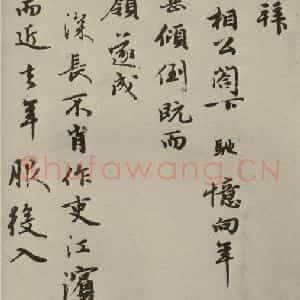 拜
相公閣下馳憶向年
無傾倒既而
嶺遂成
深長不肖作吏江濱
而近去年服後入
Shufawang.CN